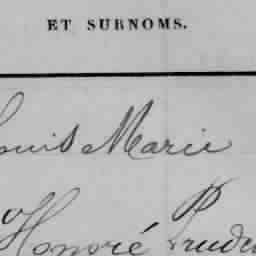 ET SURNOMS.
ouis Marie
Honoré Prude